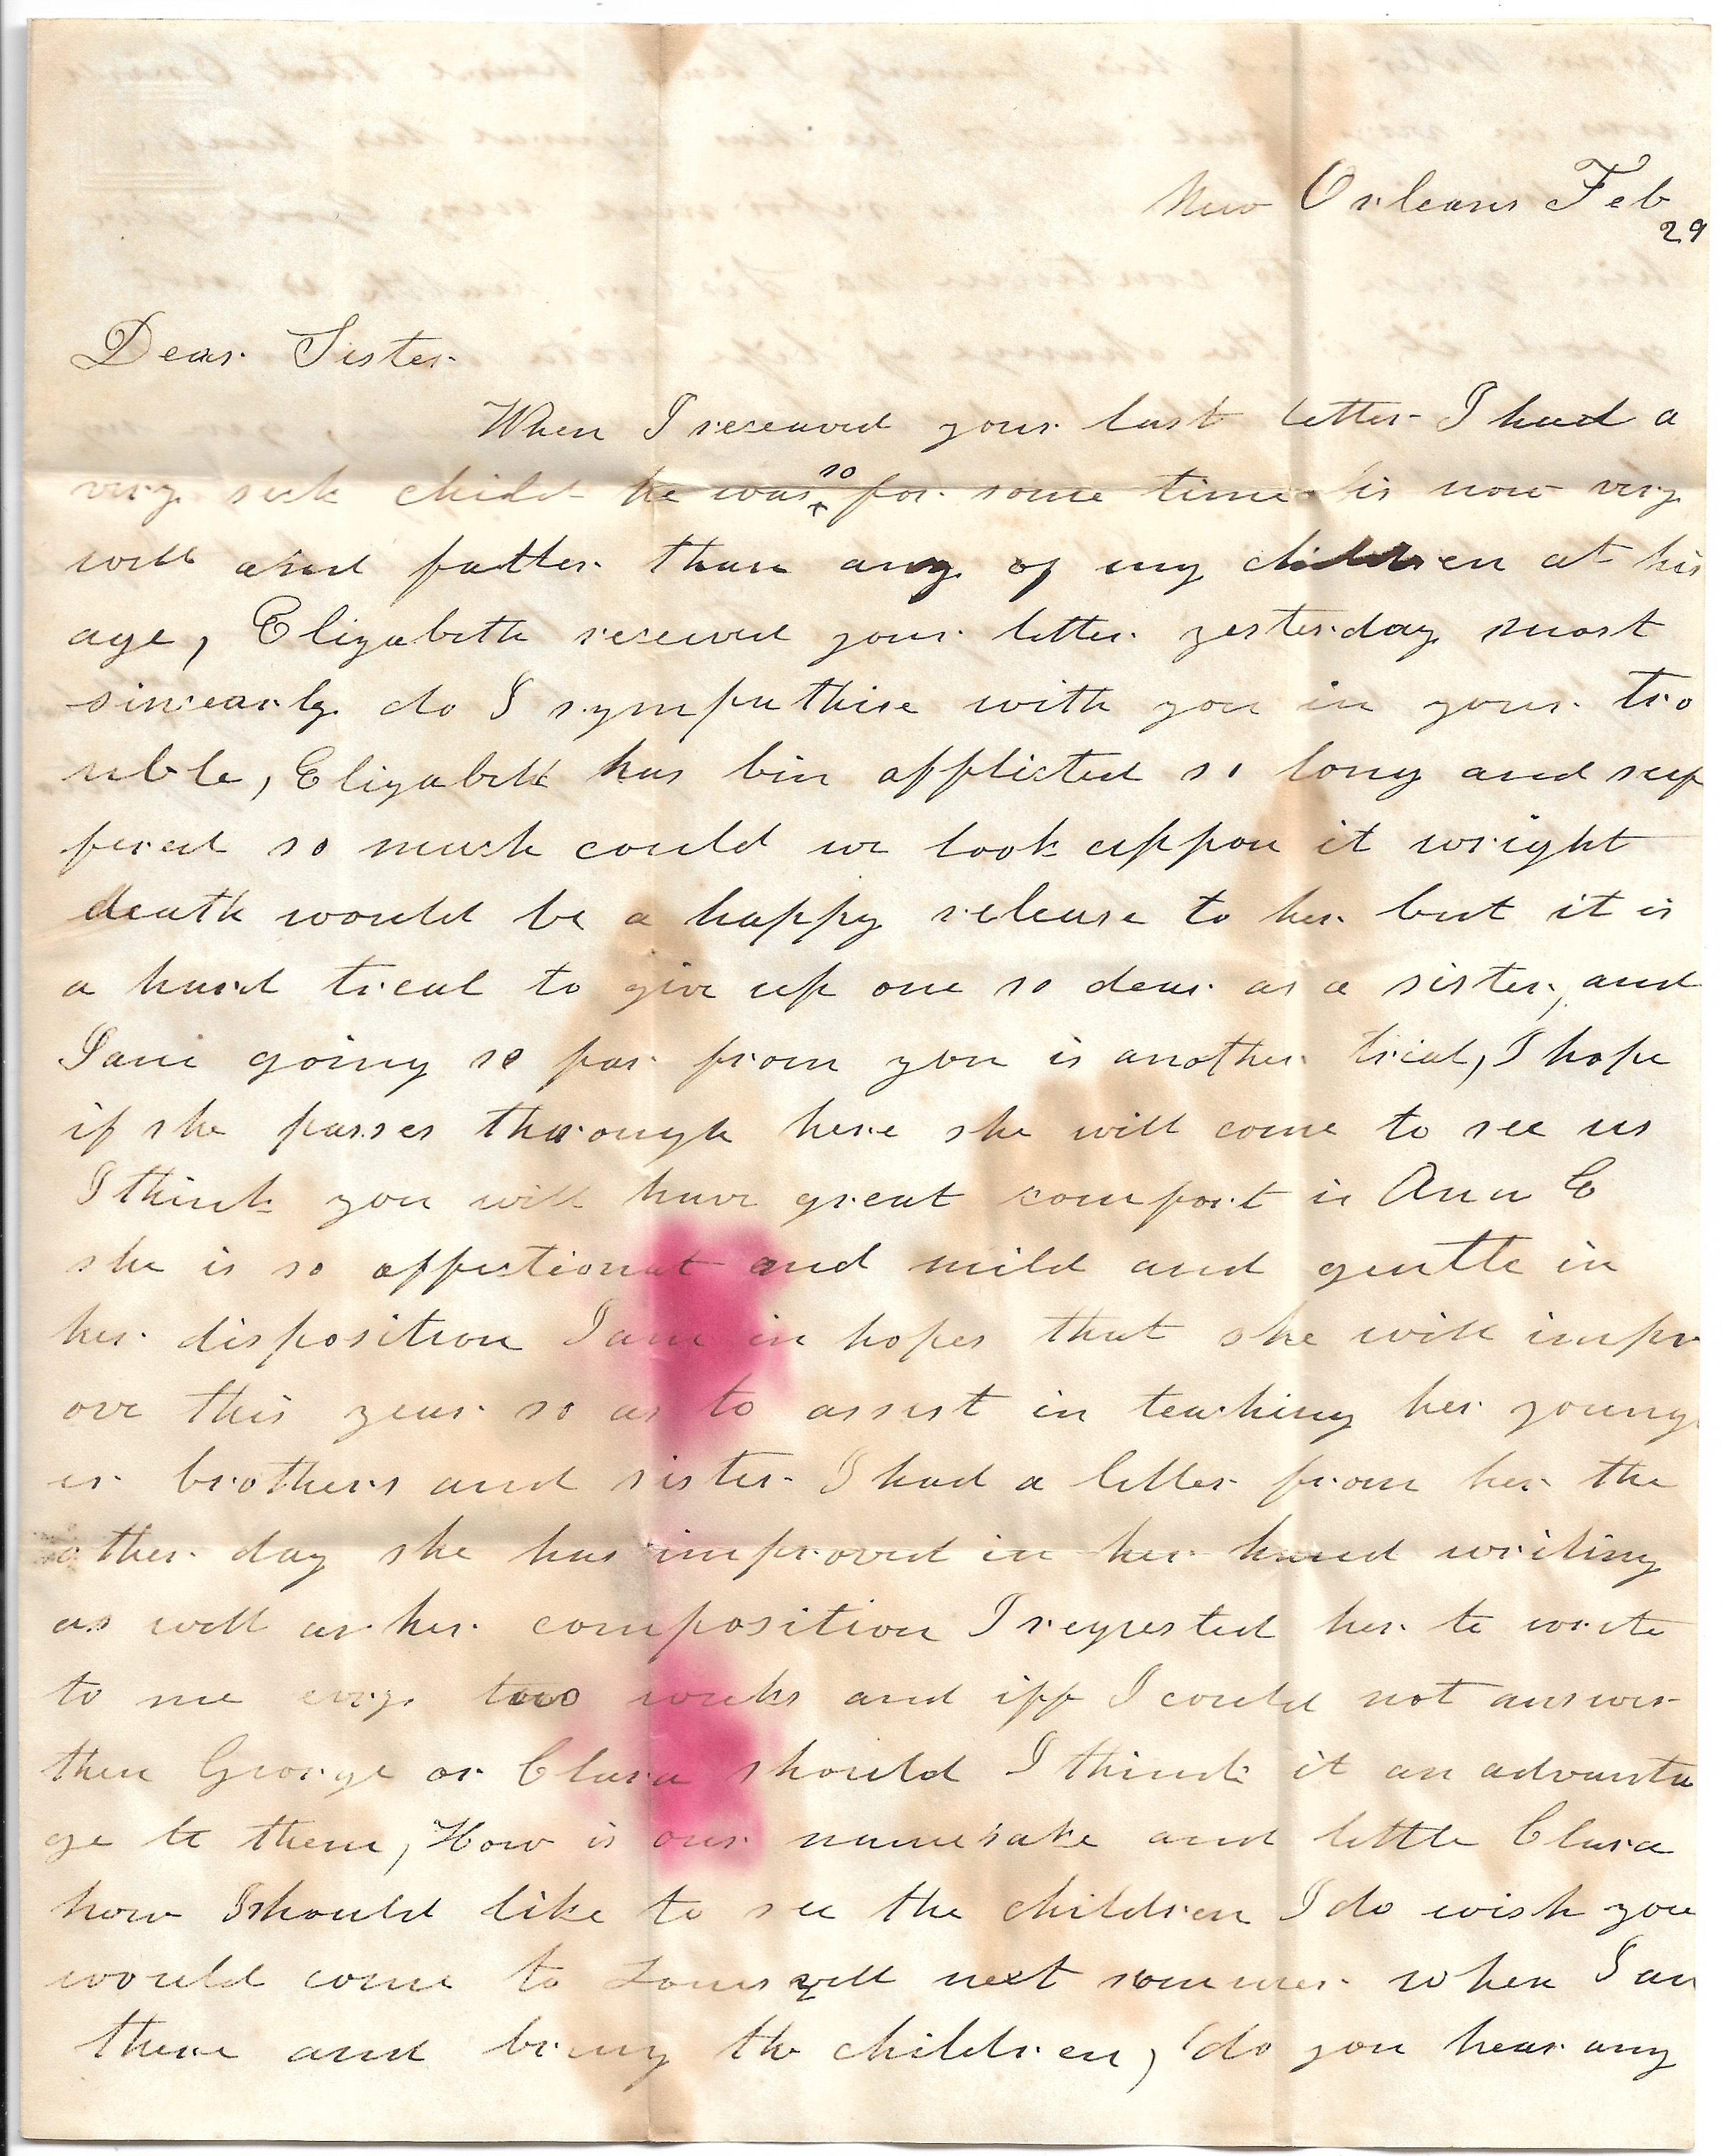 New Orleans Feb
29
Dear Sister
When I receaved your last letter I had a
so
very sick child he was for some time is now very
well and fatter than any of my children at his
age, Elizabeth received your letter yesterday most
sincearly do I sympathise with you in your tro
uble, Elizabeth has bin afflicted so long and suf
fered so much could we look uppon it wright
death would be a happy release to her but it is
a hard treal to give up one so dear as a sister, and
Jane going so far from you is another trial, I hope
if she passes through here she will come to see us
I think you will have great comfort in Ann E
she is so affectionat and mild and gentle in
her disposition I am in hopes that she will impr
ove this year so as to assist in teaching her young
er brothers and sister I had a letter from her the
other day she has improved in her hand writing
as well as her composition I reqested her to write
to me evry two weeks and iff I could not answer
then George or Clara should I think it an advanta
ge to them, How is our namesake and little Clara
how I should like to see the children I do wish you
would come to Louisvill next sommer when I am
there and bring the children, do you hear any